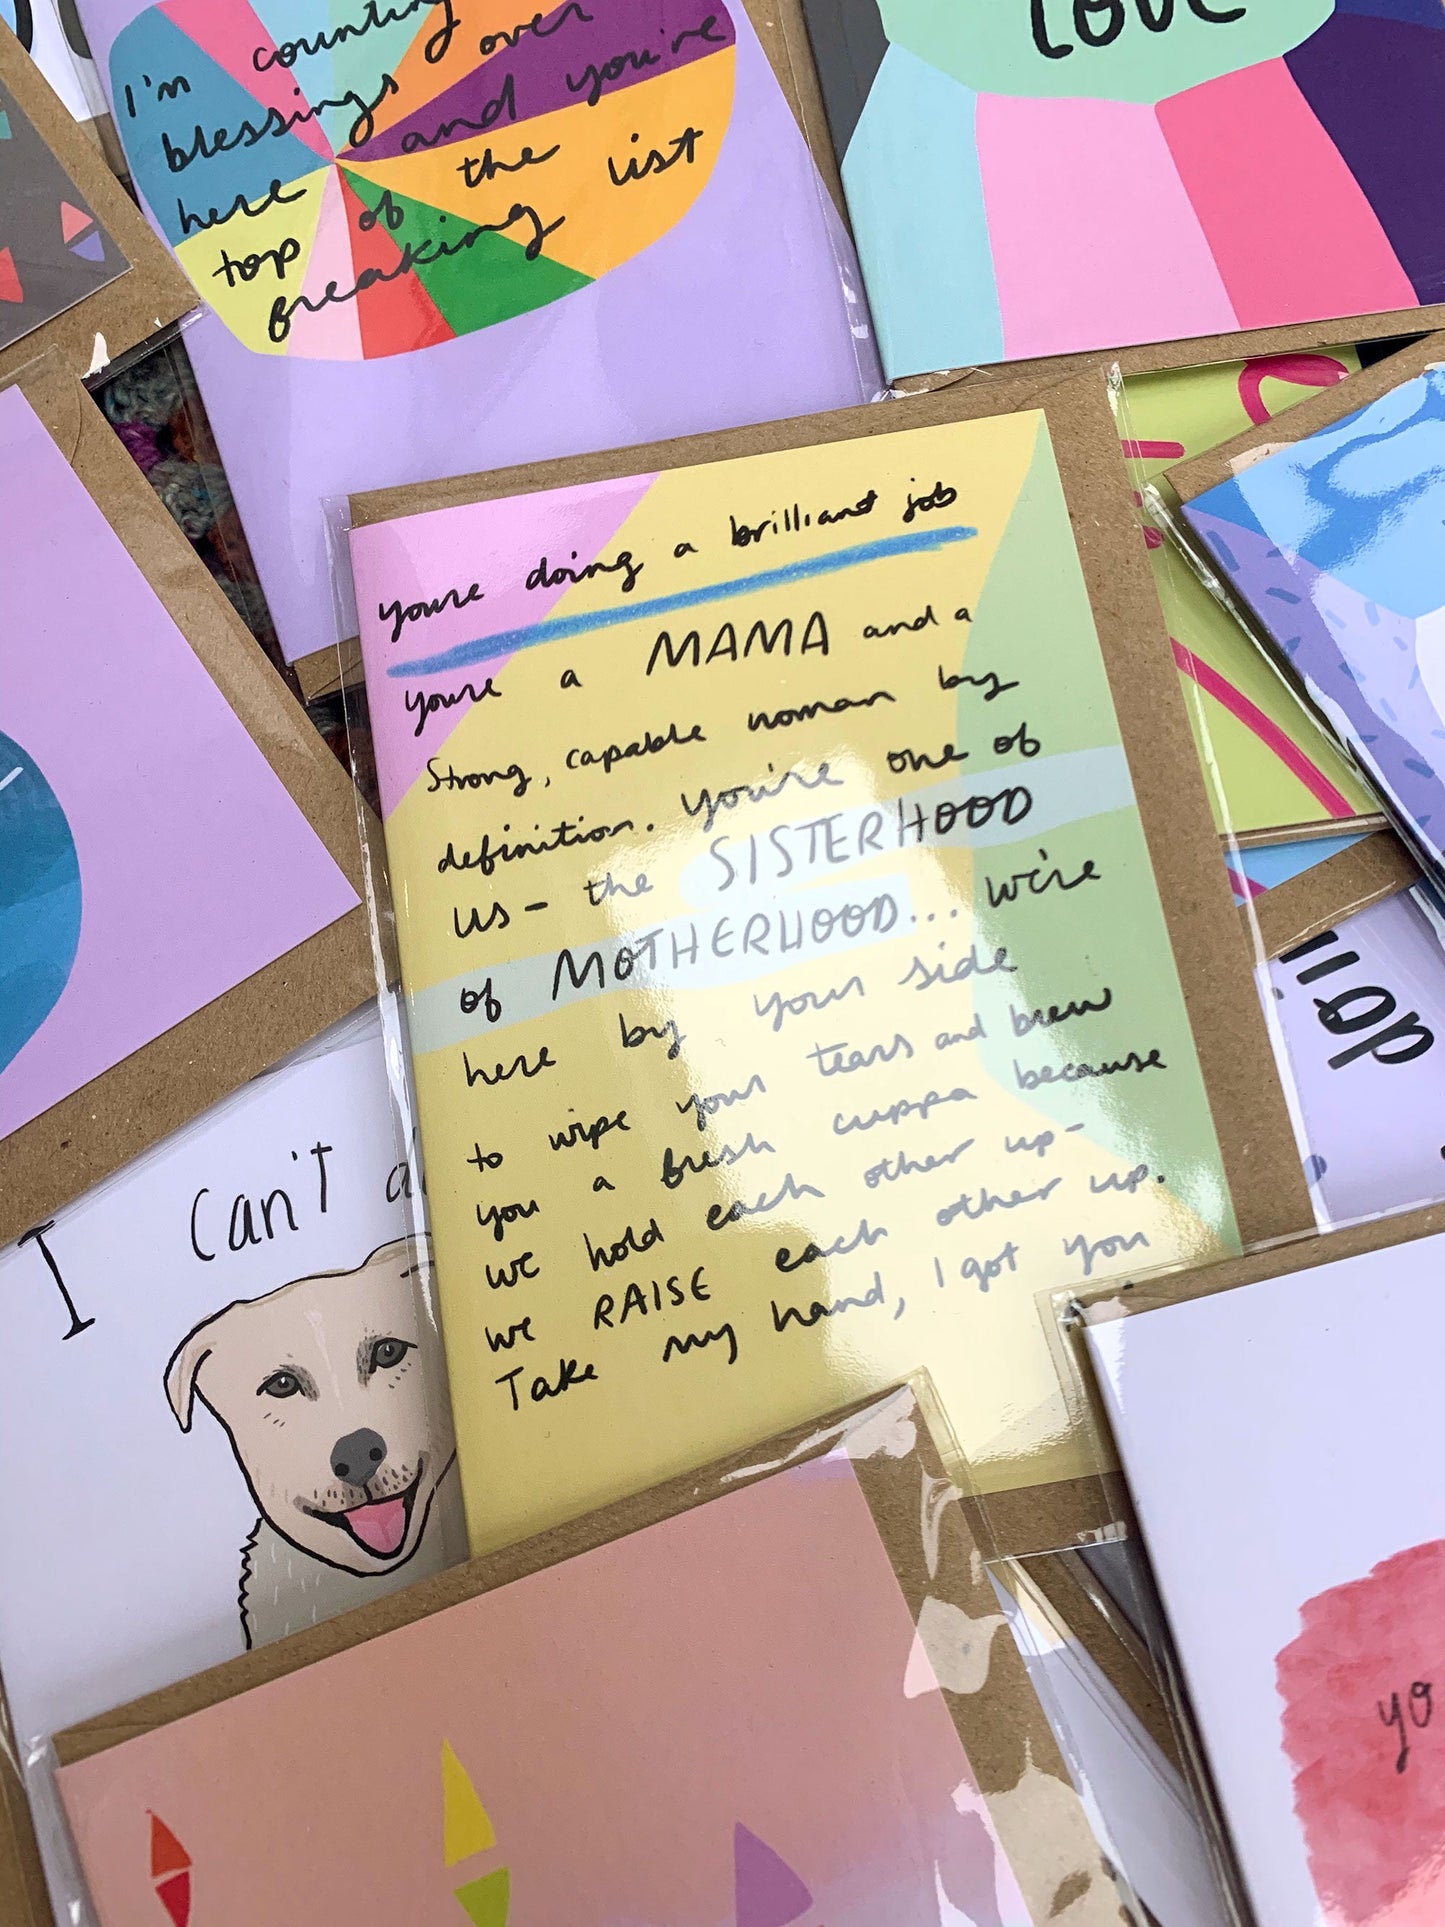 I'm counting
blessings over
here and you're
top of the list
freaking
LOVE
you're doing a brilliant job
you're a MAMA and a
strong, capable woman by
definition. you're one of
us - the SISTERHOOD
of MOTHERHOOD... we're
here by your side
to wipe your tears and brew
you a fresh cuppa because
we hold each other up -
we RAISE each other up.
Take my hand, I got you
I can't